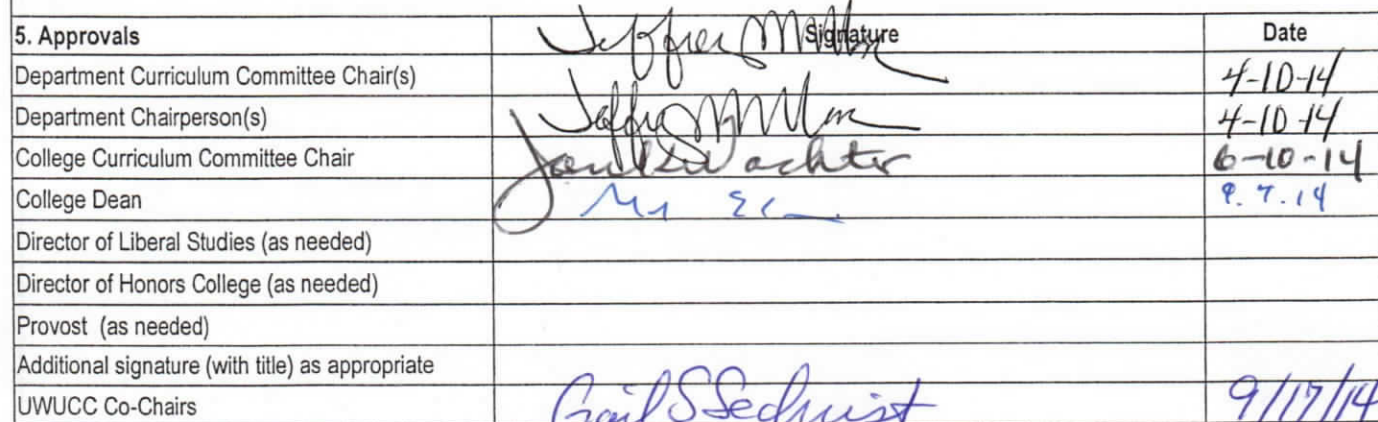 5. Approvals Signature Date
Department Curriculum Committee Chair(s) 4-10-14
Department Chairperson(s) 4-10-14
College Curriculum Committee Chair 6-10-14
College Dean 9.7.14
Director of Liberal Studies (as needed)
Director of Honors College (as needed)
Provost (as needed)
Additional signature (with title) as appropriate
UWUCC Co-Chairs Gail S Sechrist 9/17/14